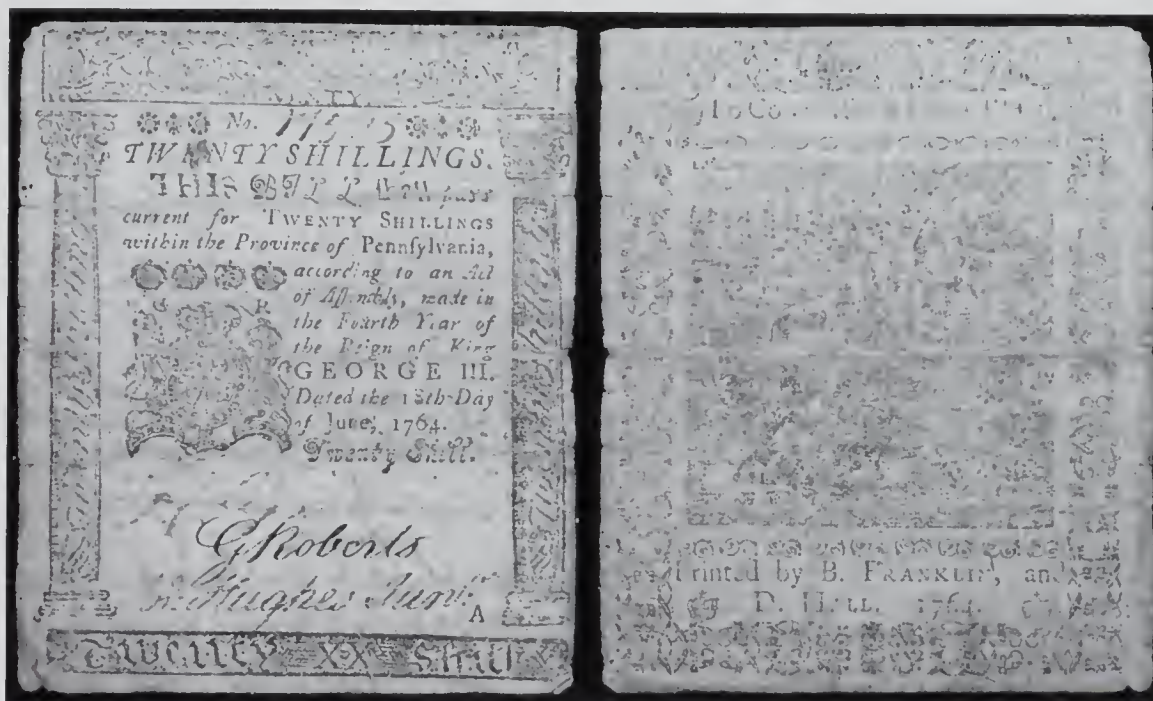 No.
TWENTY SHILLINGS.
THIS BILL ſhall paſs
current for TWENTY SHILLINGS
within the Province of Pennſylvania,
according to an Act
of Aſſembly, made in
G R
the Fourth Year of
the Reign of King
GEORGE III.
Dated the 18th Day
of June, 1764.
Twenty Shill.
G Roberts
Hughes Junr.
A
Twenty XX Shill
To Co
Printed by B. FRANKLIN, and
D. HALL. 1764.